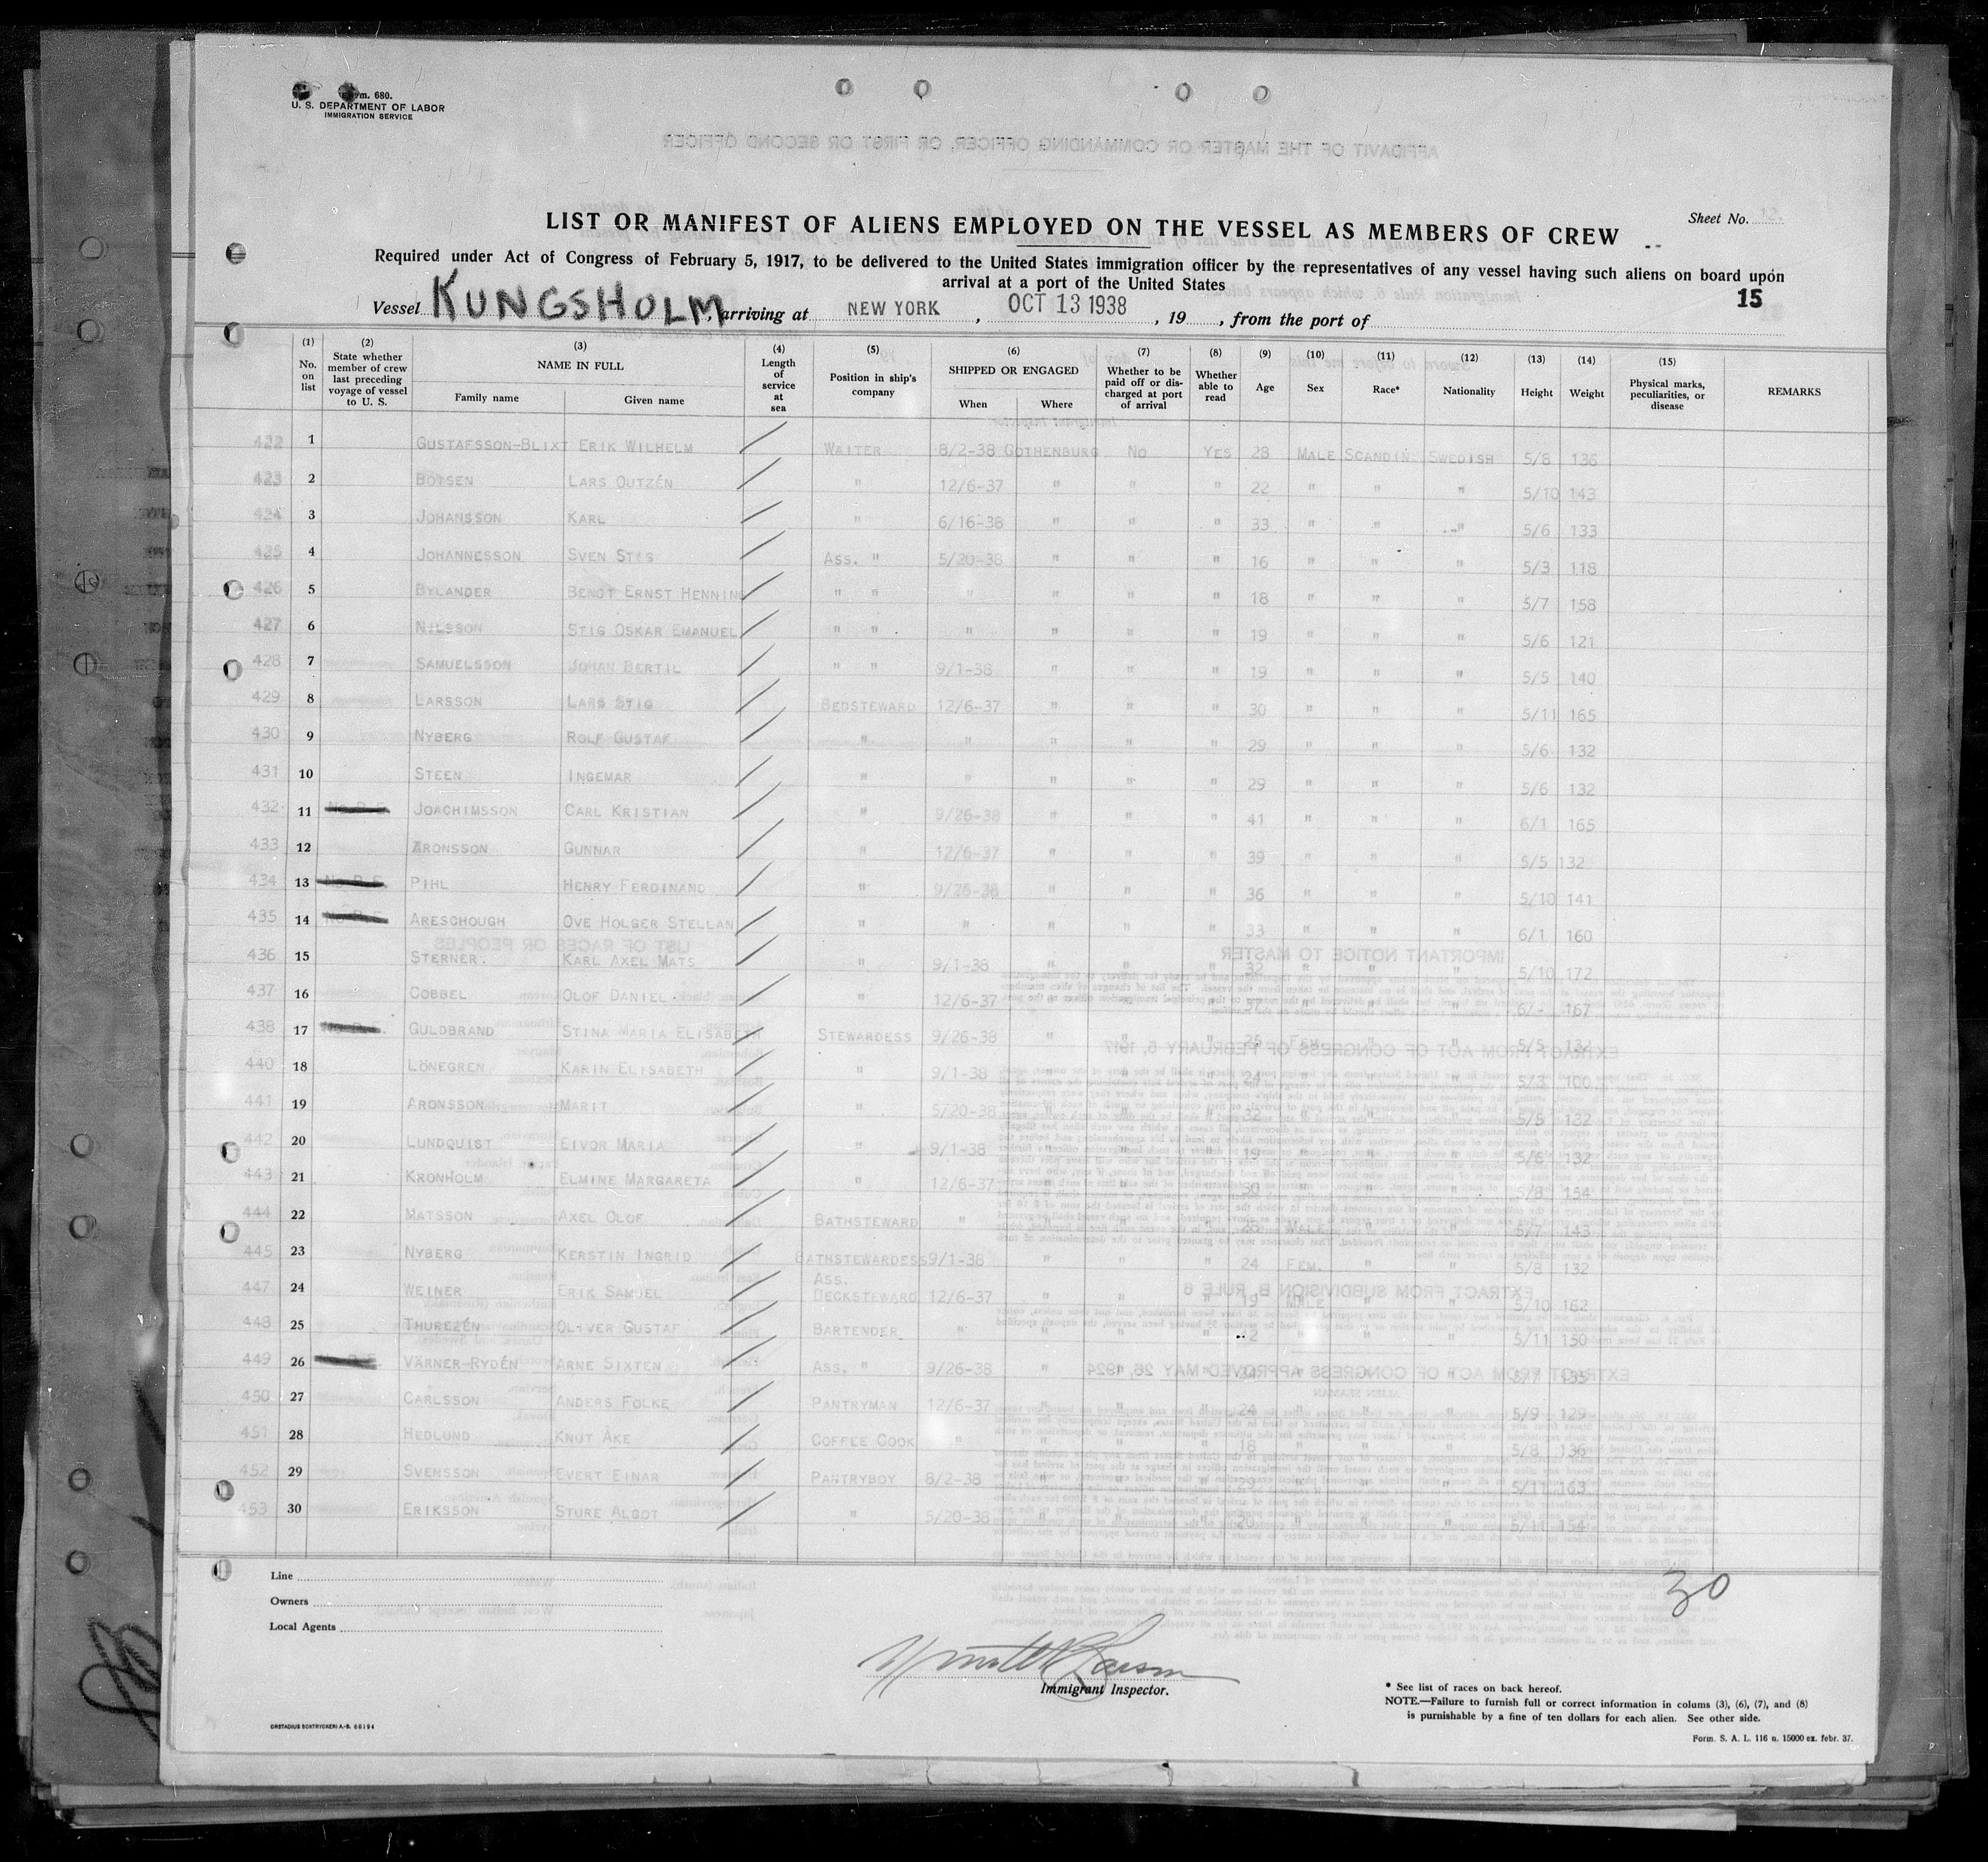 Form. 680.
U. S. DEPARTMENT OF LABOR
IMMIGRATION SERVICE
LIST OR MANIFEST OF ALIENS EMPLOYED ON THE VESSEL AS MEMBERS OF CREW
Sheet No. 12.
Required under Act of Congress of February 5, 1917, to be delivered to the United States immigration officer by the representatives of any vessel having such aliens on board upon
arrival at a port of the United States
15
Vessel KUNGSHOLM, arriving at NEW YORK, OCT 13 1938, 19, from the port of
(1) No. on list (2) State whether member of crew last preceding voyage of vessel to U. S. (3) NAME IN FULL Family name Given name (4) Length of service at sea (5) Position in ship's company (6) SHIPPED OR ENGAGED When Where (7) Whether to be paid off or discharged at port of arrival (8) Whether able to read (9) Age (10) Sex (11) Race* (12) Nationality (13) Height (14) Weight (15) Physical marks, peculiarities, or disease REMARKS
422 1 GUSTAFSSON-BLIXT ERIK WILHELM / WAITER 8/2-38 GOTHENBURG NO YES 28 MALE SCANDIN. SWEDISH 5/8 136
423 2 BOYSEN LARS OUTZÉN / " 12/6-37 " " " 22 " " " 5/10 143
424 3 JOHANSSON KARL / " 6/16-38 " " " 33 " " " 5/6 133
425 4 JOHANNESSON SVEN STIG / ASS. " 5/20-38 " " " 16 " " " 5/3 118
426 5 BYLANDER BENGT ERNST HENNING / " " " " " " 18 " " " 5/7 158
427 6 NILSSON STIG OSKAR EMANUEL / " " " " " " 19 " " " 5/6 121
428 7 SAMUELSSON JOHAN BERTIL / " " 9/1-38 " " " 19 " " " 5/5 140
429 8 LARSSON LARS STIG / BEDSTEWARD 12/6-37 " " " 30 " " " 5/11 165
430 9 NYBERG ROLF GUSTAF / " " " " " 29 " " " 5/6 132
431 10 STEEN INGEMAR / " " " " " 29 " " " 5/6 132
432 11 JOACHIMSSON CARL KRISTIAN / " 9/26-38 " " " 41 " " " 6/1 165
433 12 ARONSSON GUNNAR / " 12/6-37 " " " 39 " " " 5/5 132
434 13 PIHL HENRY FERDINAND / " 9/26-38 " " " 36 " " " 5/10 141
435 14 ARESCHOUGH OVE HOLGER STELLAN / " " " " " 33 " " " 6/1 160
436 15 STERNER. KARL AXEL MATS / " 9/1-38 " " " 32 " " " 5/10 172
437 16 COBBEL OLOF DANIEL / " 12/6-37 " " " " " " 6/- 167
438 17 GULDBRAND STINA MARIA ELISABETH / STEWARDESS 9/26-38 " " " 25 FEM. " " 5/5 132
440 18 LÖNEGREN KARIN ELISABETH / " 9/1-38 " " " 24 " " " 5/3 100
441 19 ARONSSON MARIT / " 5/20-38 " " " 32 " " " 5/5 132
442 20 LUNDQUIST EIVOR MARIA / " 9/1-38 " " " 19 " " " 5/6 132
443 21 KRONHOLM ELMINE MARGARETA / " 12/6-37 " " " 30 " " " 5/8 154
444 22 MATSSON AXEL OLOF / BATHSTEWARD " " " " 26 MALE " " 5/7 143
445 23 NYBERG KERSTIN INGRID / BATHSTEWARDESS 9/1-38 " " " 24 FEM. " " 5/8 132
447 24 WEINER ERIK SAMUEL / ASS. DECKSTEWARD 12/6-37 " " " 19 MALE " " 5/10 162
448 25 THUREZÉN OLIVER GUSTAF / BARTENDER " " " " " " " 5/11 150
449 26 VÄRNER-RYDÉN ARNE SIXTEN / ASS. " 9/26-38 " " " " " "
450 27 CARLSSON ANDERS FOLKE / PANTRYMAN 12/6-37 " " " 24 " " " 5/9 129
451 28 HEDLUND KNUT ÅKE / COFFEE COOK " " " " 18 " " " 5/8 136
452 29 SVENSSON EVERT EINAR / PANTRYBOY 8/2-38 " " " 29 " " " 5/11 163
453 30 ERIKSSON STURE ALGOT / " 5/20-38 " " " 20 " " " 5/11 154
30
Line
Owners
Local Agents
Immigrant Inspector.
* See list of races on back hereof.
NOTE.—Failure to furnish full or correct information in colums (3), (6), (7), and (8)
is punishable by a fine of ten dollars for each alien. See other side.
ORSTADIUS BOKTRYCKERI A.-B. 60194
Form. S. A. L. 116 n. 15000 ex. febr. 37.